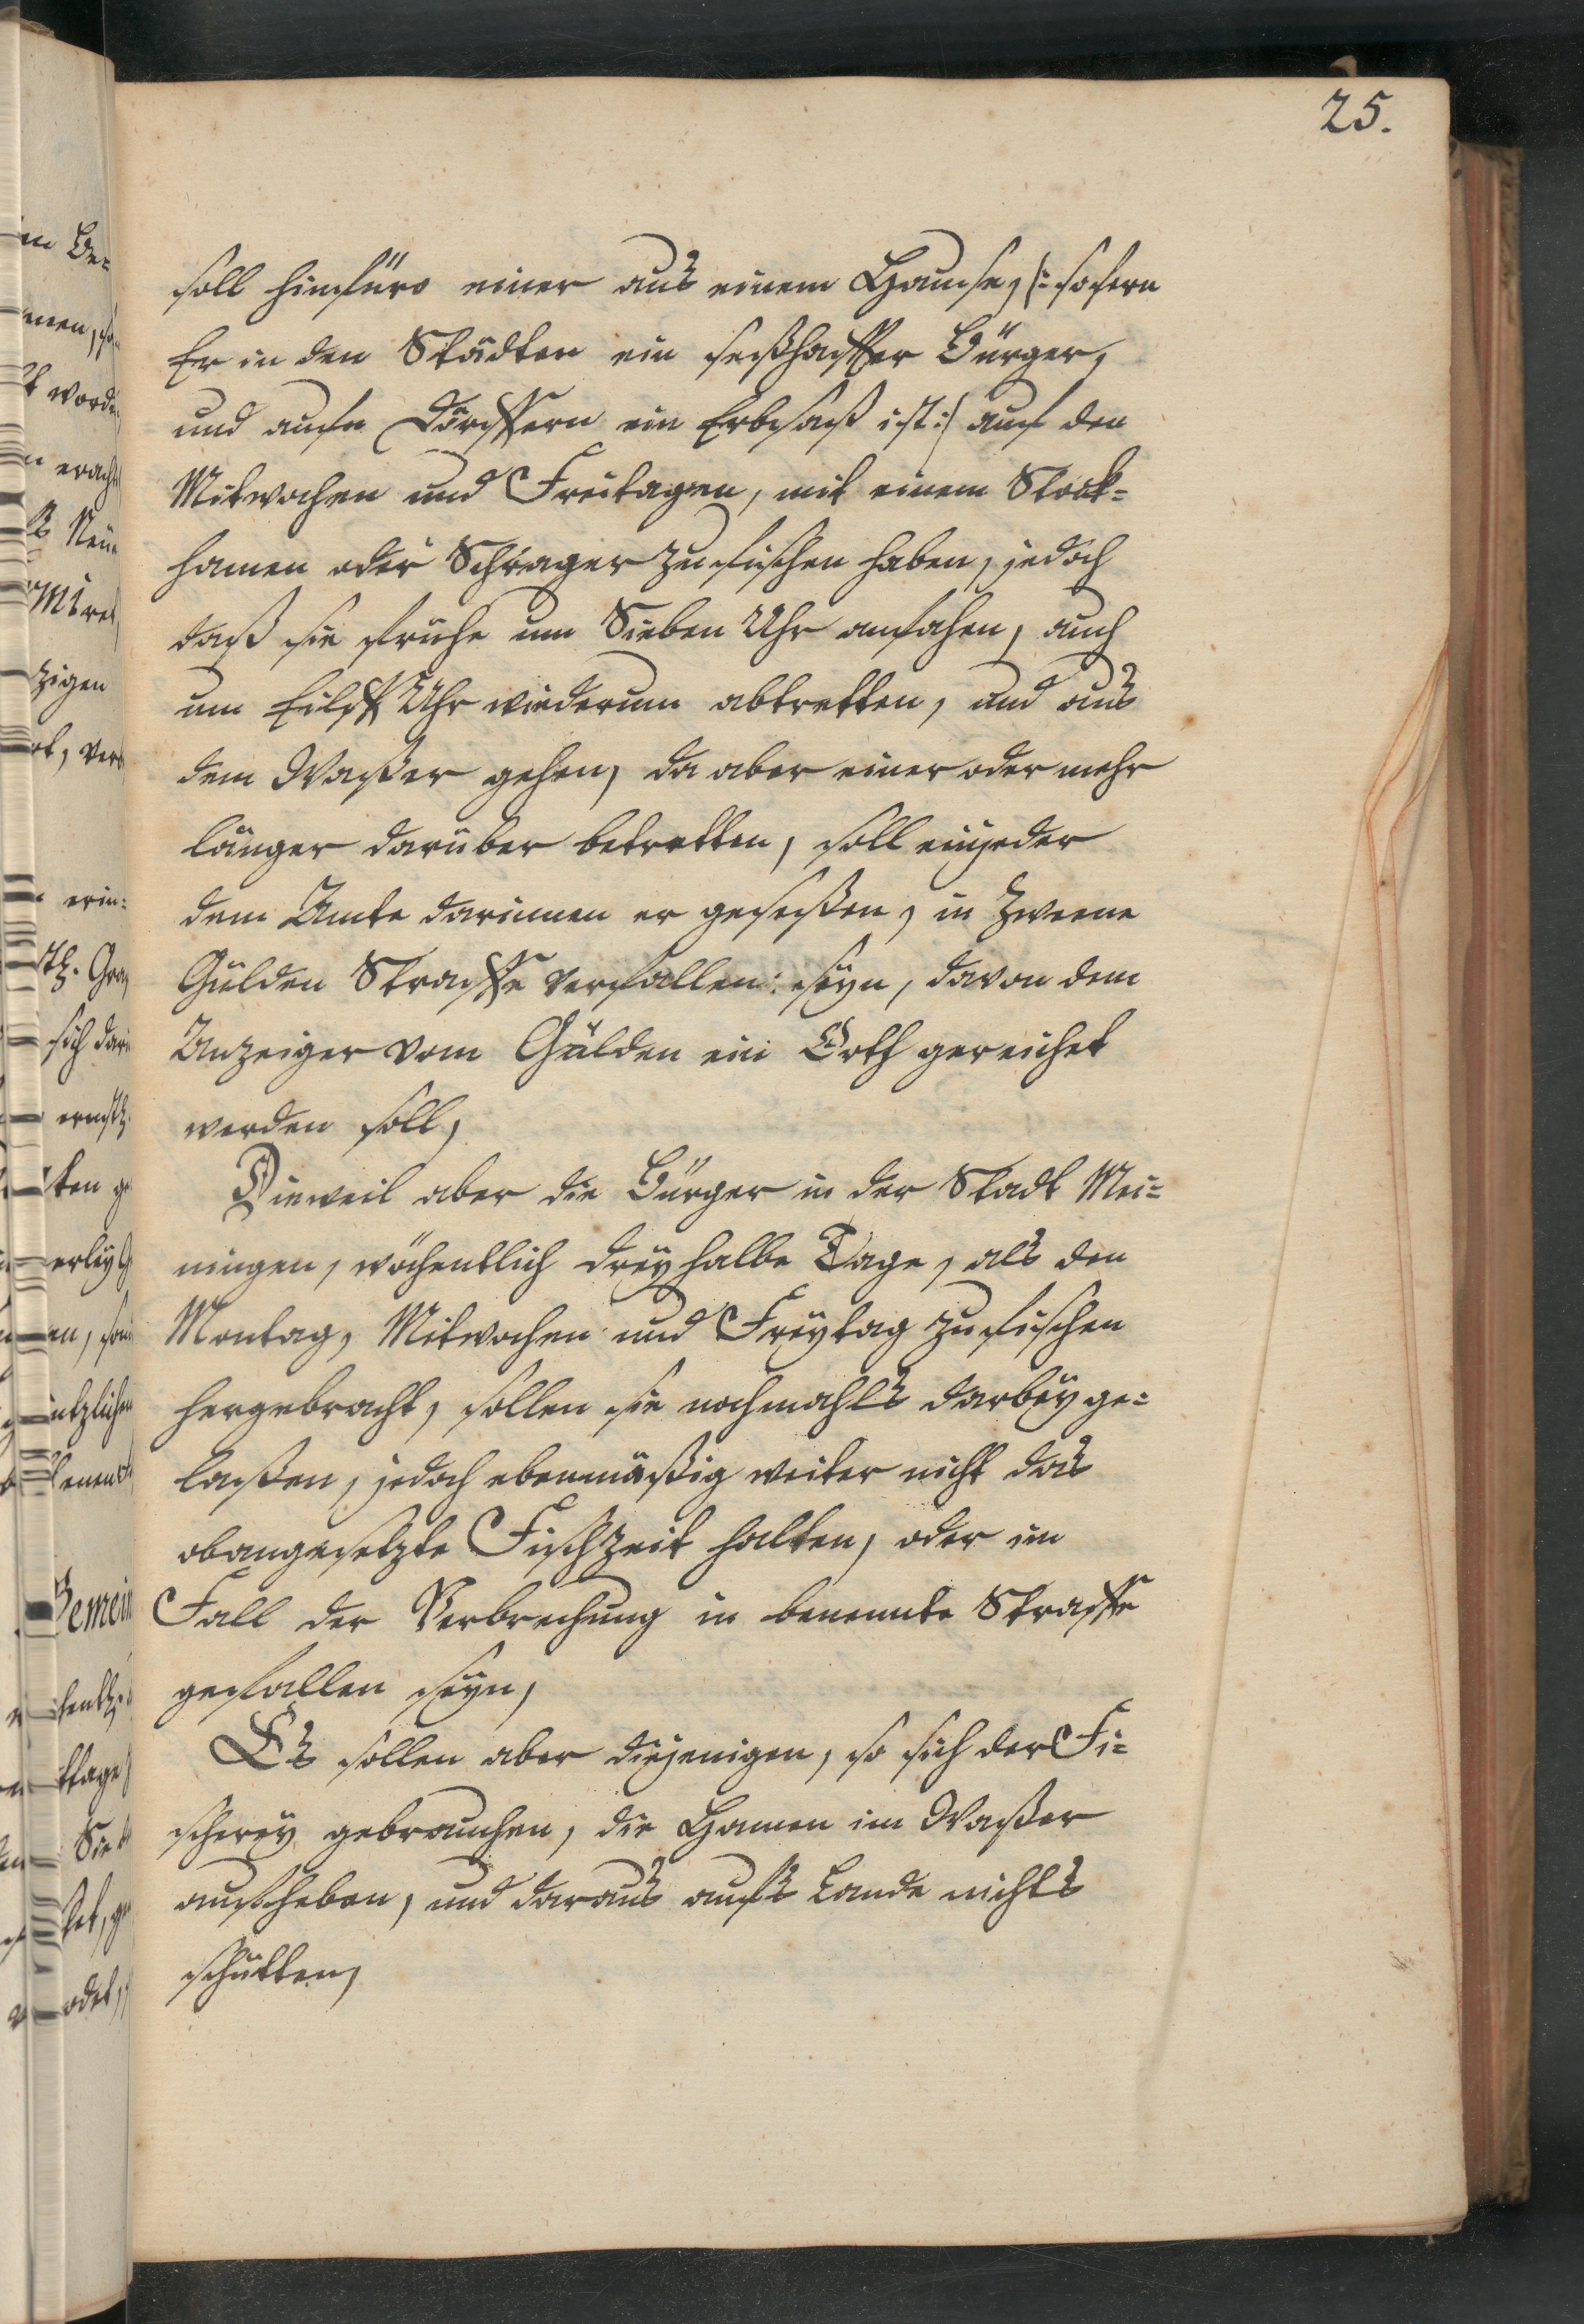 25.
soll hinfüro einer aus einem Hause, |: sofern
Er in den Städten ein seßhaffter Bürger,
und aufn Dörffern ein Erbsaß ist :| auf den
Mitwochen und Freitagen, mit einem Stock-
hamen oder Schrager zu fischen haben, jedoch
daß sie frühe um Sieben Uhr anfahen, auch
um Eilff Uhr wiederum abtretten, und aus
dem Waßer gehen, da aber einer oder mehr
länger darüber betretten, soll ein jeder
dem Amte darinnen er geseßen, in Zweene
Gülden Straffe verfallen seyn, davon dem
Anzeiger vom Gülden ein Orth gereichet
werden soll,
Dieweil aber die Bürger in der Stadt Mei-
ningen, wöchentlich drey halbe Tage, als den
Montag, Mitwochen und Freytag zu fischen
hergebracht, sollen sie nochmahls darbey ge-
laßen, jedoch ebenmäßig weiter nicht das
obangesetzte Fischzeit halten, oder im
Fall der Verbrechung in benennte Straffe
gefallen seyn,
Es sollen aber diejenigen, so sich der Fi-
scherey gebrauchen, die Hamen im Waßer
aufheben, und daraus aufs Lande nichts
schütten,